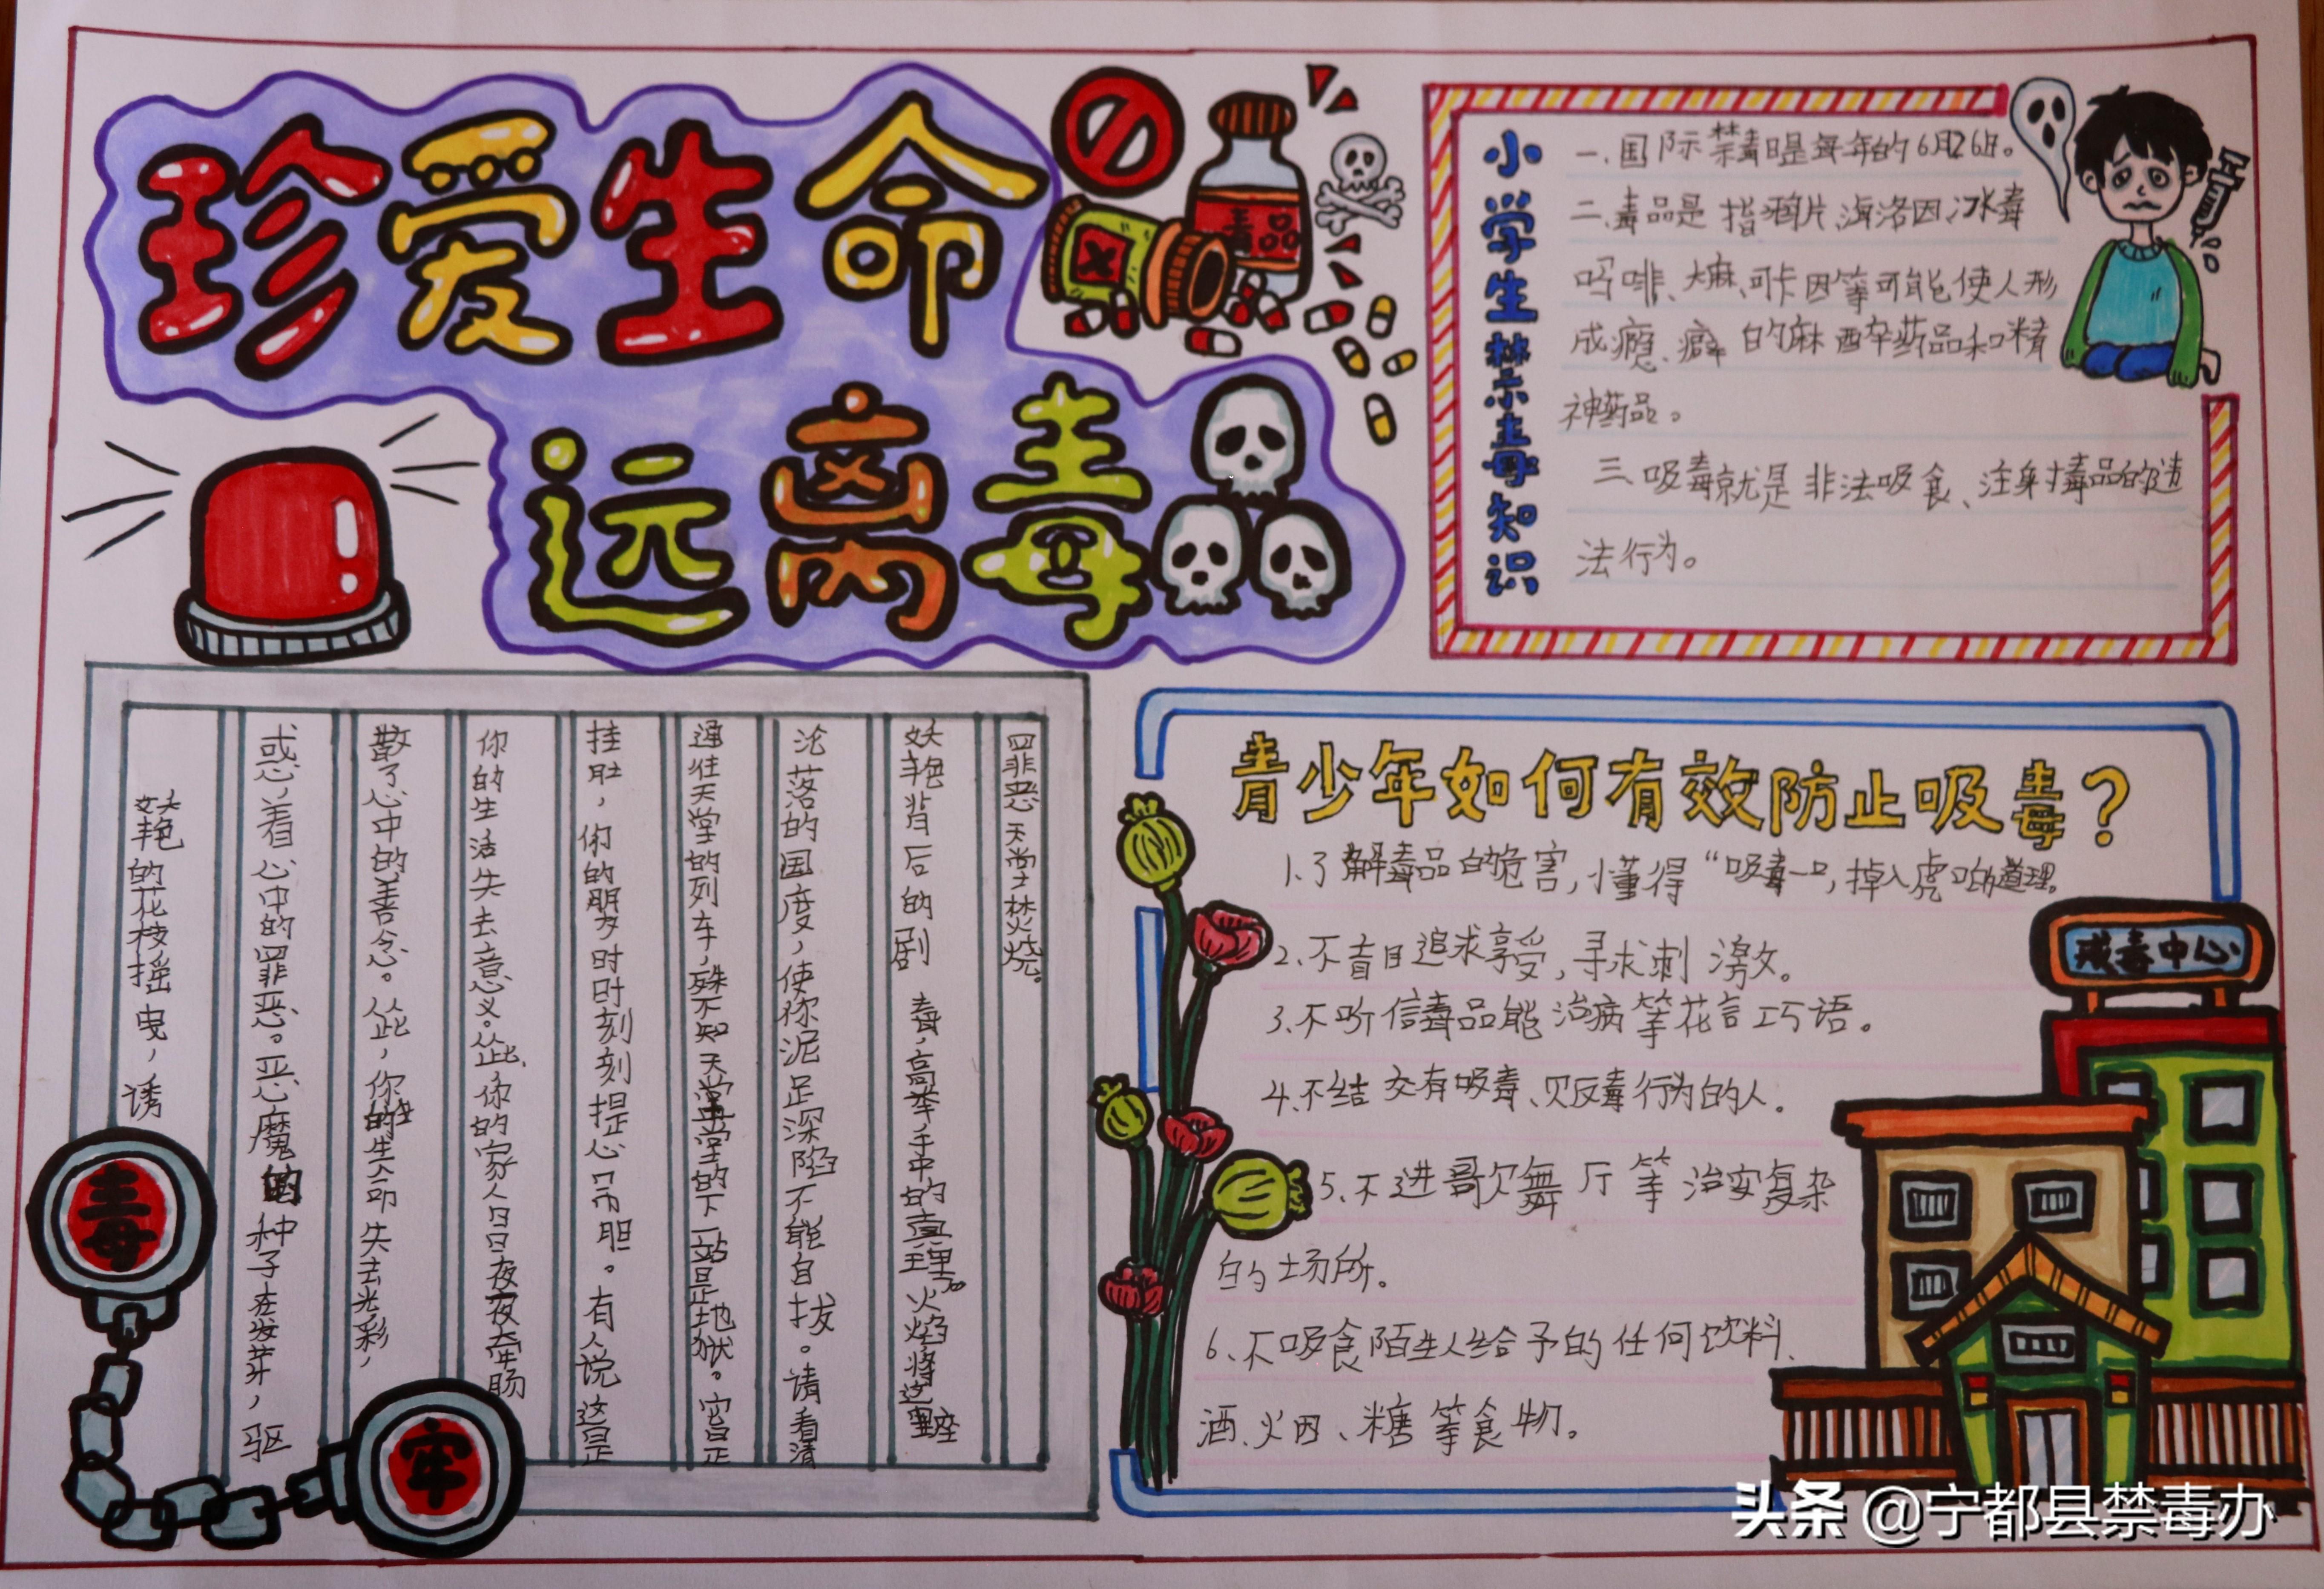 珍爱生命
远离毒
毒品
小学生禁毒知识
一、国际禁毒日是每年的6月26日。
二、毒品是指鸦片、海洛因、冰毒
吗啡、大麻、可卡因等可能使人形
成瘾、癖的麻醉药品和精
神药品。
三、吸毒就是非法吸食、注射毒品的违
法行为。
妖艳的花枝摇曳，诱
惑着心中的罪恶。恶魔的种子在发芽，驱
散了心中的善念。从此，你的生命失去光彩，
你的生活失去意义。从此，你的家人日日夜夜牵肠
挂肚，你的朋友时时刻刻提心吊胆。有人说这是
通往天堂的列车，殊不知天堂的下一站是地狱。它是
沦落的国度，使你泥足深陷不能自拔。请看清
妖艳背后的剧毒，高举手中的真理。火焰将这座
罪恶天堂焚烧。
毒
牢
青少年如何有效防止吸毒？
1、了解毒品的危害，懂得“吸毒一口，掉入虎口”的道理。
2、不盲目追求享受，寻求刺激。
3、不听信毒品能治病等花言巧语。
4、不结交有吸毒、贩毒行为的人。
5、不进歌舞厅等治安复杂
的场所。
6、不吸食陌生人给予的任何饮料、
酒、烟、糖等食物。
戒毒中心
头条 @宁都县禁毒办